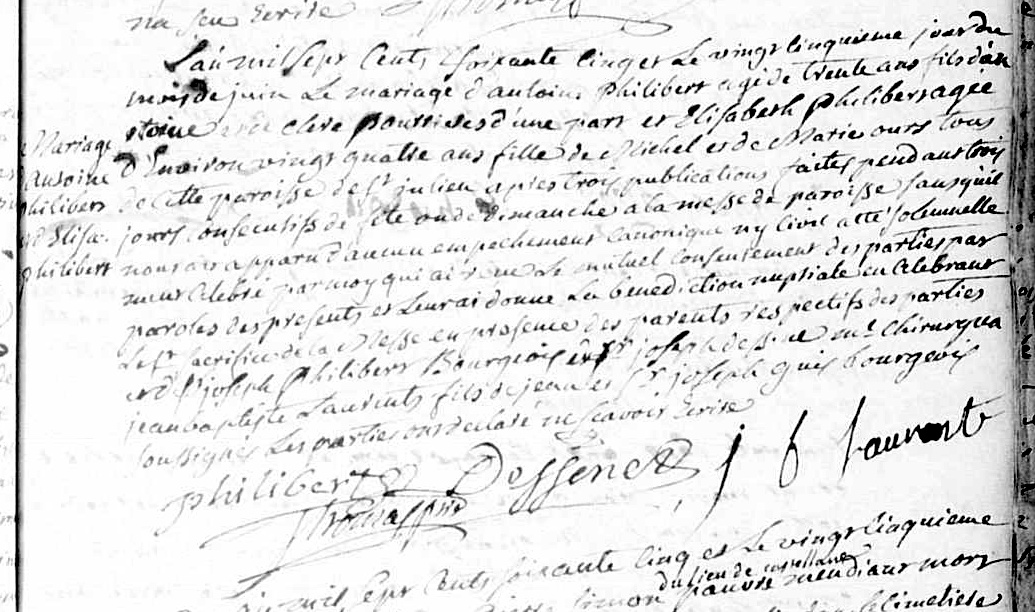 na seu Ecrire
L'an mil sept Cents soixante Cinq et Le vingt Cinquieme jour du
mois de juin Le mariage d'antoine philibert agé de trente ans fils d'an
toine et de claire pourrieres d'une part et Elisabeth philibert agée
d'Environ vingt quatre ans fille de Michel et de Marie ours tous
de cette paroisse de st julien apres trois publications faites pendant trois
jours Consecutifs de fete ou de dimanche a la messe de paroisse sans quil
nous ait apparu d'aucun empechement Canonique ny Civil a été solemnelle
ment Celebré par moy qui ai reçu le mutuel Consentement des parties par
paroles des presents et Leur ai donné La benediction nuptiale en Celebrant
Le st sacrifice de la Messe en presence des parents respectifs des parties
et de sr joseph philibert Bourgeois et sr joseph dessene mt chirurgien
jean baptiste Laurents fils de jean et sr joseph guis bourgeois
soussignés Les parties ont declaré ne sçavoir Ecrire
Mariage
Antoine
philibert
et Elisa.
philibert
philibert Dessene j f laurent
L'an mil sept Cents soixante Cinq et Le vingt Cinquieme
du lieu de castellane
simon pauvre mendiant mort
Cimetiere